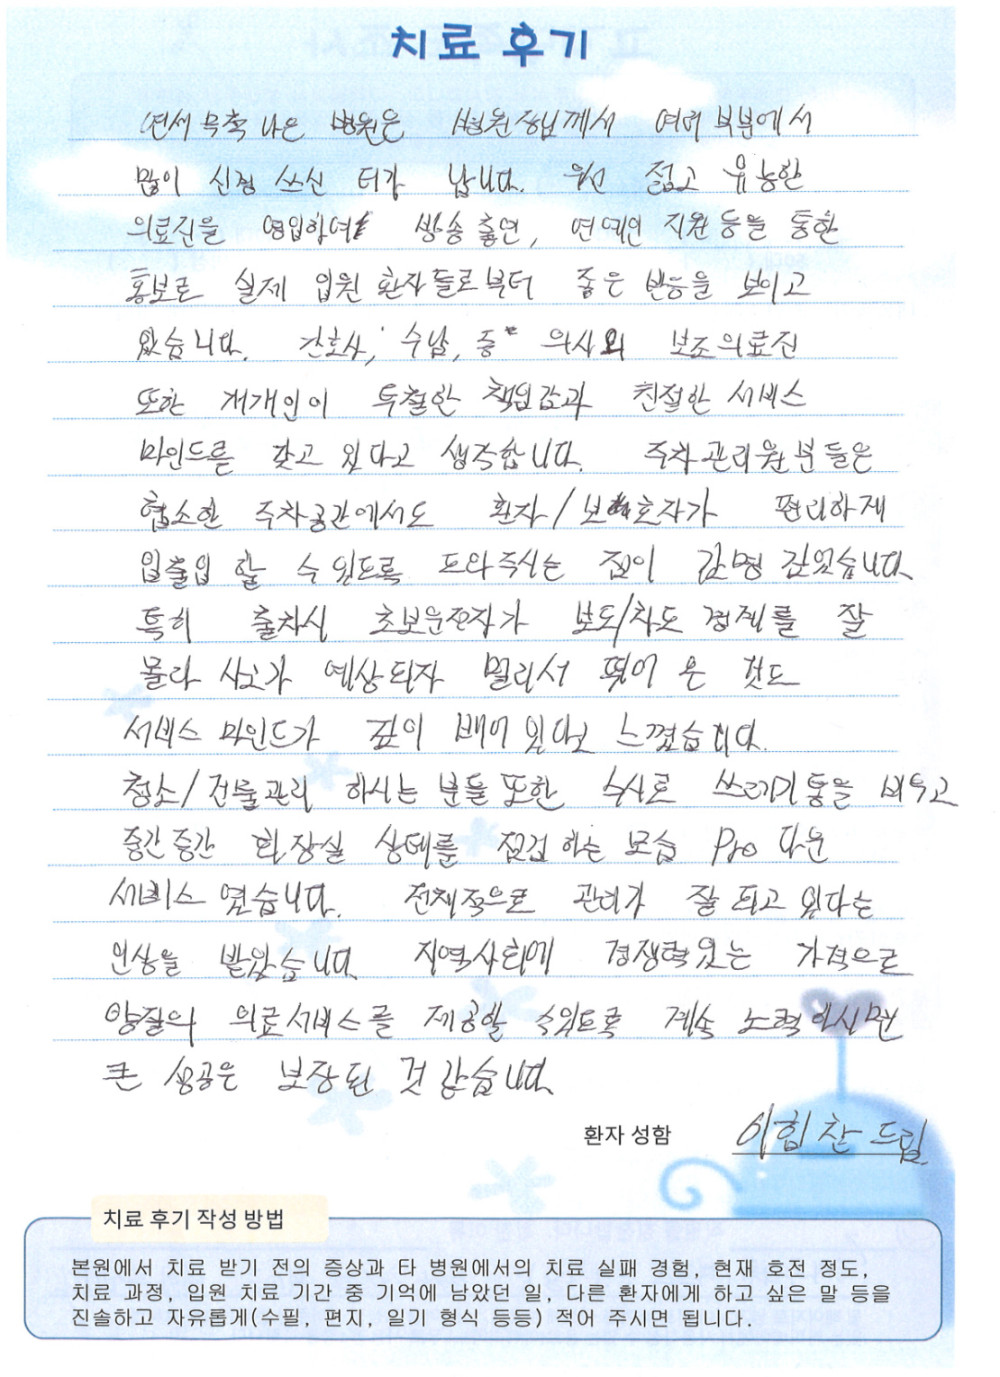 치료 후기
연세무척나은 병원은 병원장님께서 여러 부분에서
많이 신경 쓰신 티가 납니다. 우선 젊고 유능한
의료진을 영입하여 방송출연, 연예인 지원 등을 통한
홍보로 실제 입원 환자들로부터 좋은 반응을 보이고
있습니다. 간호사, 수납, 등 의사외 보조의료진
또한 개개인이 투철한 책임감과 친절한 서비스
마인드를 갖고 있다고 생각합니다. 주차관리원분들은
협소한 주차공간에서도 환자/보호자가 편리하게
입출입 할 수 있도록 도와주시는 점이 감명 깊었습니다
특히 출차시 초보운전자가 보도/차도 경계를 잘
몰라 사고가 예상되자 멀리서 뛰어 온 것도
서비스 마인드가 깊이 배어 있다고 느꼈습니다.
청소/건물관리 하시는 분들 또한 수시로 쓰레기통을 비우고
중간중간 화장실 상태를 점검하는 모습 Pro 다운
서비스 였습니다. 전체적으로 관리가 잘 되고 있다는
인상을 받았습니다 지역사회에 경쟁력있는 가격으로
양질의 의료서비스를 제공할 수있도록 계속 노력하시면
큰 성공은 보장된 것 같습니다
환자 성함 이힘찬 드림
치료 후기 작성 방법
본원에서 치료 받기 전의 증상과 타 병원에서의 치료 실패 경험, 현재 호전 정도,
치료 과정, 입원 치료 기간 중 기억에 남았던 일, 다른 환자에게 하고 싶은 말 등을
진솔하고 자유롭게(수필, 편지, 일기 형식 등등) 적어 주시면 됩니다.